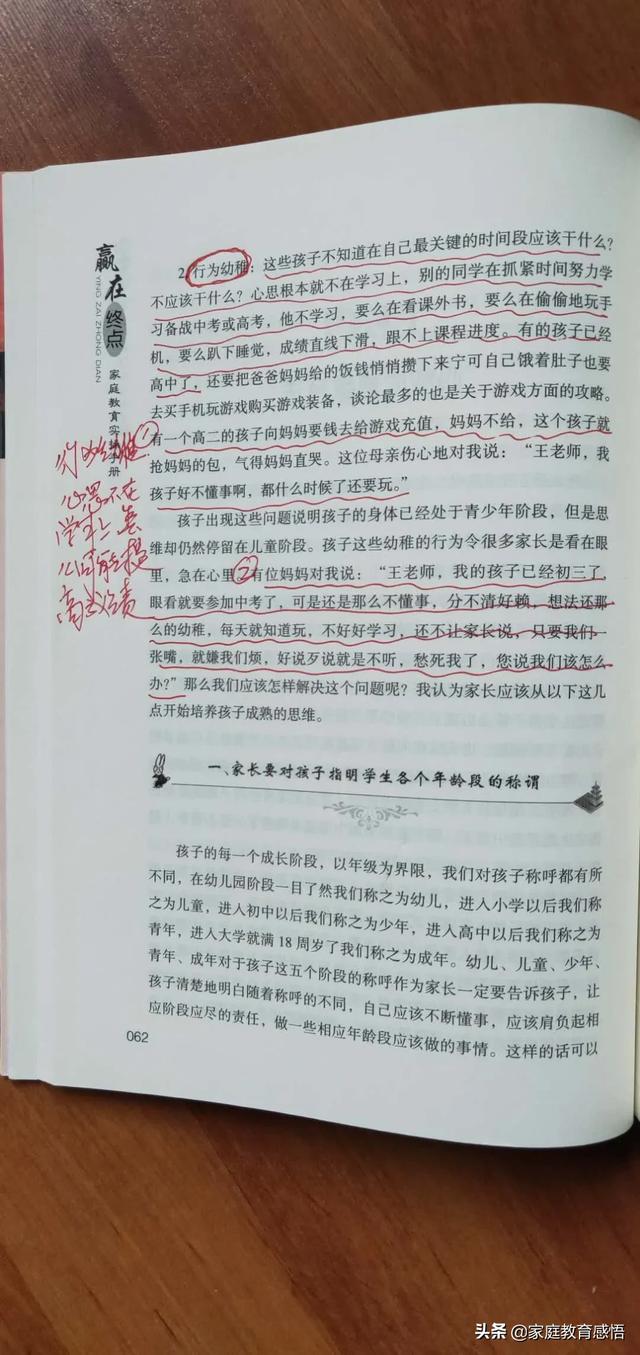 赢在终点
YING ZAI ZHONG DIAN
家庭教育实 册
2. 行为幼稚：这些孩子不知道在自己最关键的时间段应该干什么？
不应该干什么？心思根本就不在学习上，别的同学在抓紧时间努力学
习备战中考或高考，他不学习，要么在看课外书，要么在偷偷地玩手
机，要么趴下睡觉，成绩直线下滑，跟不上课程进度。有的孩子已经
高中了，还要把爸爸妈妈给的饭钱悄悄攒下来宁可自己饿着肚子也要
去买手机玩游戏购买游戏装备，谈论最多的也是关于游戏方面的攻略。
有一个高二的孩子向妈妈要钱去给游戏充值，妈妈不给，这个孩子就
抢妈妈的包，气得妈妈直哭。这位母亲伤心地对我说：“王老师，我
孩子好不懂事啊，都什么时候了还要玩。”
孩子出现这些问题说明孩子的身体已经处于青少年阶段，但是思
维却仍然停留在儿童阶段。孩子这些幼稚的行为令很多家长是看在眼
里，急在心里②有位妈妈对我说：“王老师，我的孩子已经初三了，
眼看就要参加中考了，可是还是那么不懂事，分不清好赖，想法还那
么的幼稚，每天就知道玩，不好好学习，还不让家长说，只要我们一
张嘴，就嫌我们烦，好说歹说就是不听，愁死我了，您说我们该怎么
办？”那么我们应该怎样解决这个问题呢？我认为家长应该从以下这几
点开始培养孩子成熟的思维。
行为幼稚①
心思不在
学习上 怎
么可能提
高成绩
一、家长要对孩子指明学生各个年龄段的称谓
孩子的每一个成长阶段，以年级为界限，我们对孩子称呼都有所
不同，在幼儿园阶段一目了然我们称之为幼儿，进入小学以后我们称
之为儿童，进入初中以后我们称之为少年，进入高中以后我们称之为
青年，进入大学就满 18 周岁了我们称之为成年。幼儿、儿童、少年、
青年、成年对于孩子这五个阶段的称呼作为家长一定要告诉孩子，让
孩子清楚地明白随着称呼的不同，自己应该不断懂事，应该肩负起相
应阶段应尽的责任，做一些相应年龄段应该做的事情。这样的话可以
062
头条 @家庭教育感悟